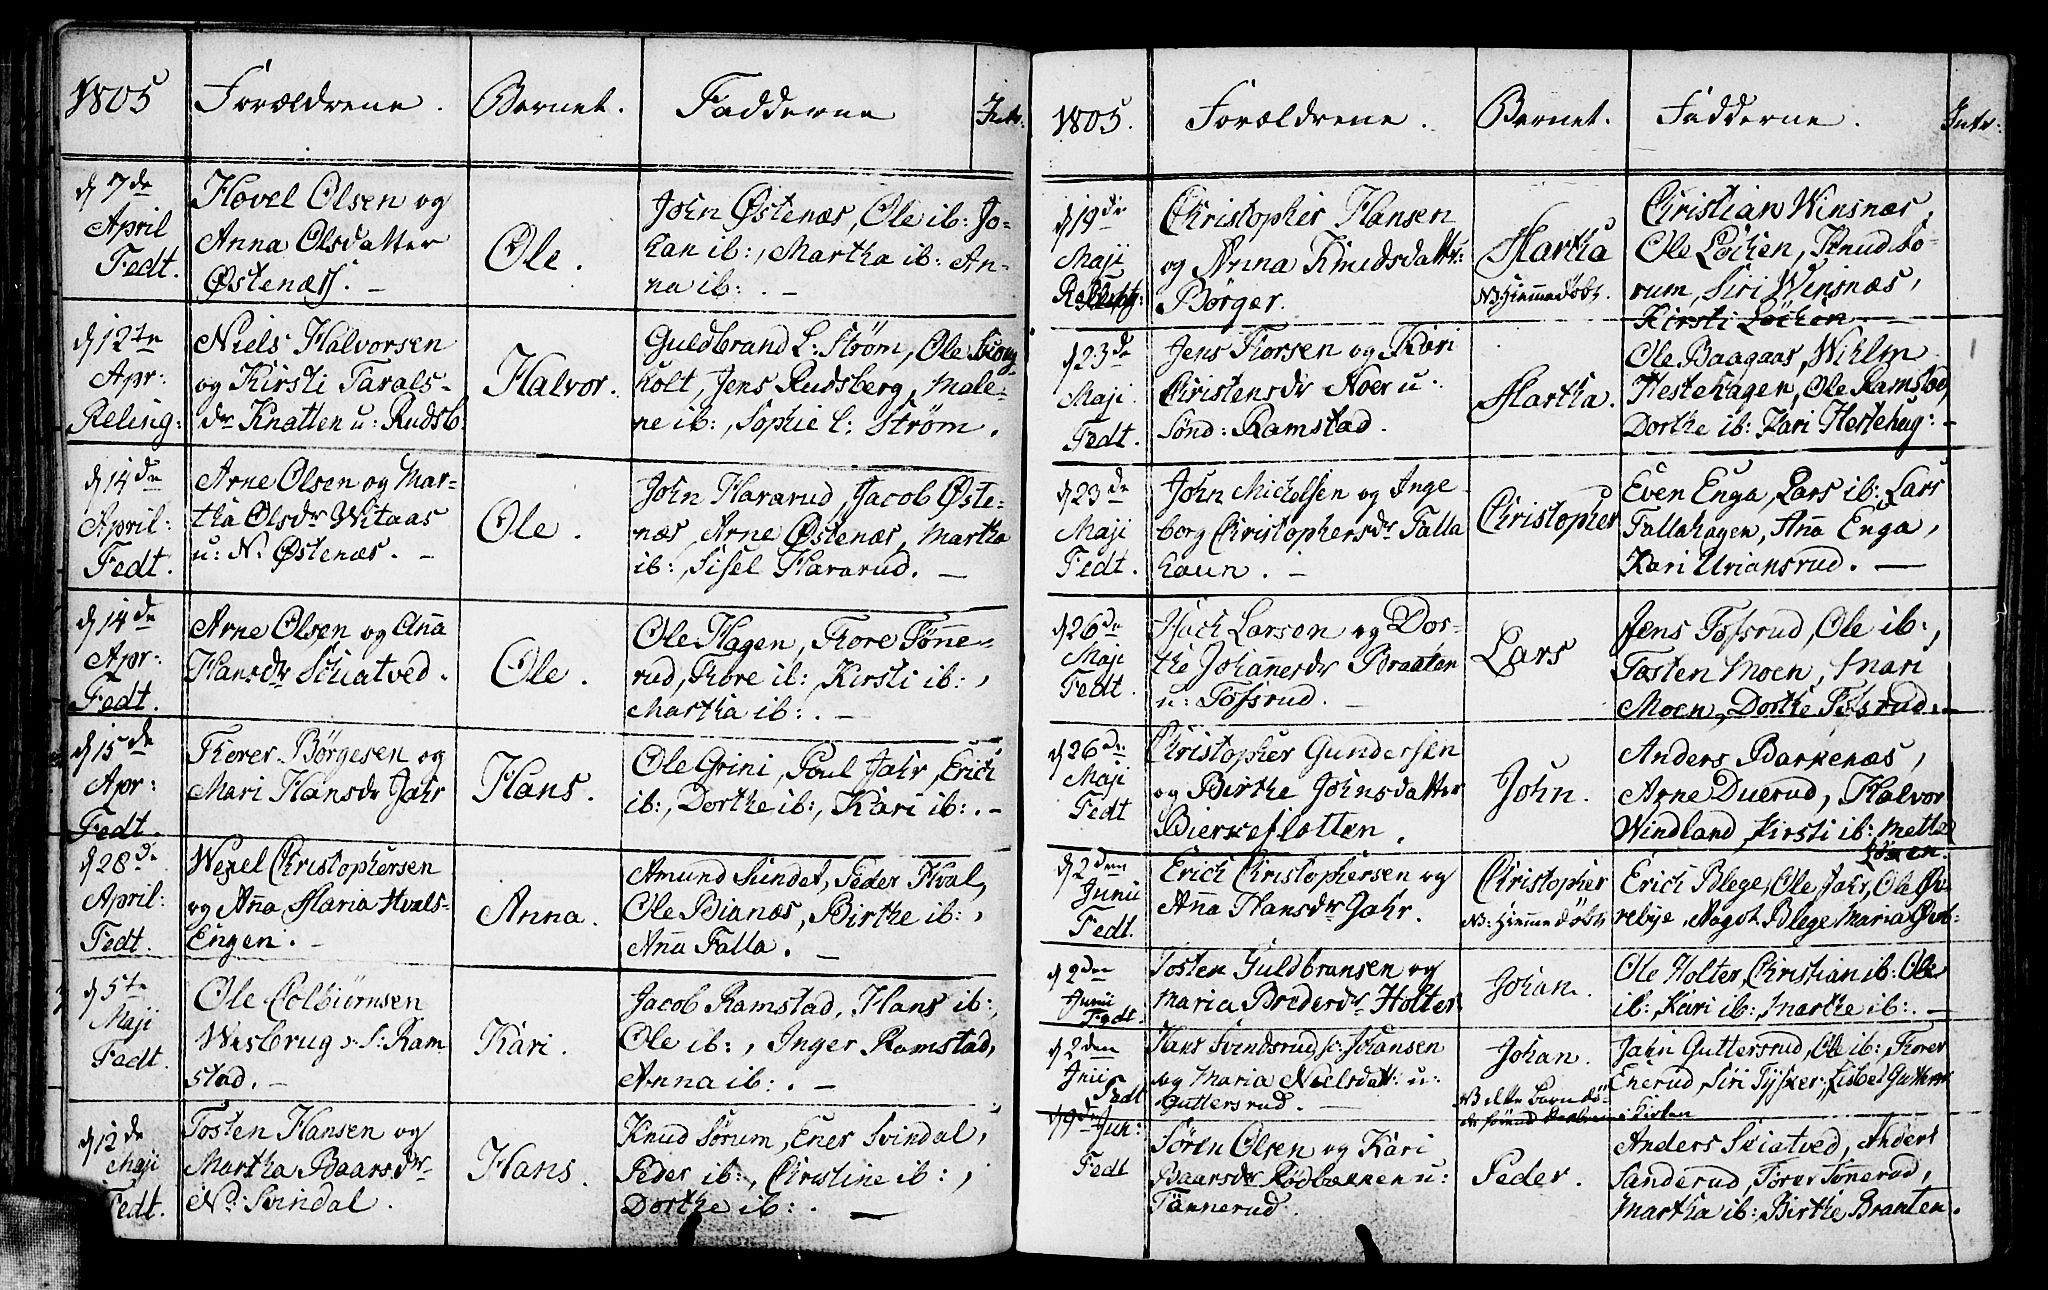 1805 Forældrene. Barnet. Fadderne Intr.
d 7de
April
Fedt.
Hovel Olsen og
Anna Olsdatter
Østenæs. -
Ole.
John Østenæs, Ole ib: Jo-
han ib:, Martha ib: An-
na ib:. -
d 12te
Apr:
Reling:
Niels Halvorsen
og Kirsti Tarals-
dr Knatten u: Rudsb.
Halvor.
Guldbrand L: Strøm, Ole
holt, Jens Rudsberg, Male-
ne ib:, Sophie L: Strøm.
d 14de
April:
Fedt.
Arne Olsen og Mar-
tha Olsdr Witaas
u: N. Østenæs. -
Ole.
John Hararud, Jacob Øste-
næs, Arne Østenæs, Martha
ib:, Sisel Hararud. -
d 14de
Apr:
Fedt.
Arne Olsen og Aña
Hansdr Schiatved.
Ole.
Ole Hagen, Thore Tøñe-
rud, Thore ib:, Kirsti ib:,
Martha ib:. -
d 15de
Apr:
Fedt.
Thorer Børgesen og
Mari Hansdr Jahr
Hans.
Ole Grini, Poul Jahr, Erich
ib:, Dorthe ib:, Kari ib:. -
d 28de
April:
Fedt.
Wexel Christophersen
og Aña Maria Hvals-
Engen. -
Anna.
Amund Sundet, Peder Hval,
Ole Bianæs, Birthe ib:,
Aña Falla. -
d 5te
Maji
Fedt.
Ole Colbiørnsen
Westerug S: Ram-
stad. -
Kari.
Jacob Ramstad, Hans ib:,
Ole ib:, Inger Ramstad,
Anna ib:. -
d 12de
Maji
Fedt.
Tosten Hansen og
Martha Baarsdr
Nd: Svindal.
Hans.
Knud Sørum, Ener Svindal,
Peder ib:, Christine ib:,
Dorthe ib:. -
1805. Forældrene. Barnet. Fadderne. Intr:
d 19de
Maji
Christopher Hansen
og Anna Knudsdattr:
Børger.
Martha
NB Hiemmedøbt.
Christian Winsnæs,
Ole Løchen, Knud So-
rum, Siri Winsnæs,
Kirsti Løchen
d 23de
Maji.
Fedt.
Jens Thorsen og Kari
Christensdr Noer u:
Sønd: Ramstad.
Martha.
Ole Baagaas, Wihlm
Hestehagen, Ole Ramstad,
Dorthe ib: Kari Hestehag: -
d 23de
Maji
Fedt.
John Michelsen og Inge-
borg Christophersdr Falla
haun. -
Christopher
Even Enga, Lars ib: Lars
Fallahagen, Aña Enga,
Kari Uriansrud. -
d 26de
Maji
Fedt.
Isach Larsen og Dor-
the Johañesdr Braaten
u: Tofsrud. -
Lars
Jens Tofsrud, Ole ib:,
Tosten Moen, Mari
Moen, Dorthe Tofsrud. -
d 26de
Maji
Fedt
Christopher Gundersen
og Birthe Johnsdatter
Bierkeflotten.
John.
Anders Barkenæs,
Arne Duerud, Halvor
Windland, Kirsti ib: Mette

d 2den
Junii
Fedt.
Erich Christophersen og
Aña Hansdr Jahr.
Christopher
NB: Hiemmedøbt
Erich Blege, Ole Jahr, Ole Øv-
rebye, Aagot Blege, Maria
d 2den
Junii
Fedt.
Tosten Guldbransen og
Maria Bredesdr Holter.
Johan.
Ole Holter, Christian ib: Ole
ib:, Kari ib:, Marthe ib:. -
d 2den
Junii
Fedt
Hans Svindsrud Johansen
og Maria Nielsdatt: u:
Guttersrud. -
Johan.
NB dette Barn dø-
i Kirken
Jahn Guttersrud, Ole ib: Thorer
Enerud, Siri Tysker, Lisbet
d 9de Jun:
Fedt
Søren Olsen og Kari
Baarsdr Rødbakken u:
Tønnerud.
Peder.
Anders Skiatved, Anders
Sanderud, Torer Tønerud,
Martha ib:, Birthe Braaten.